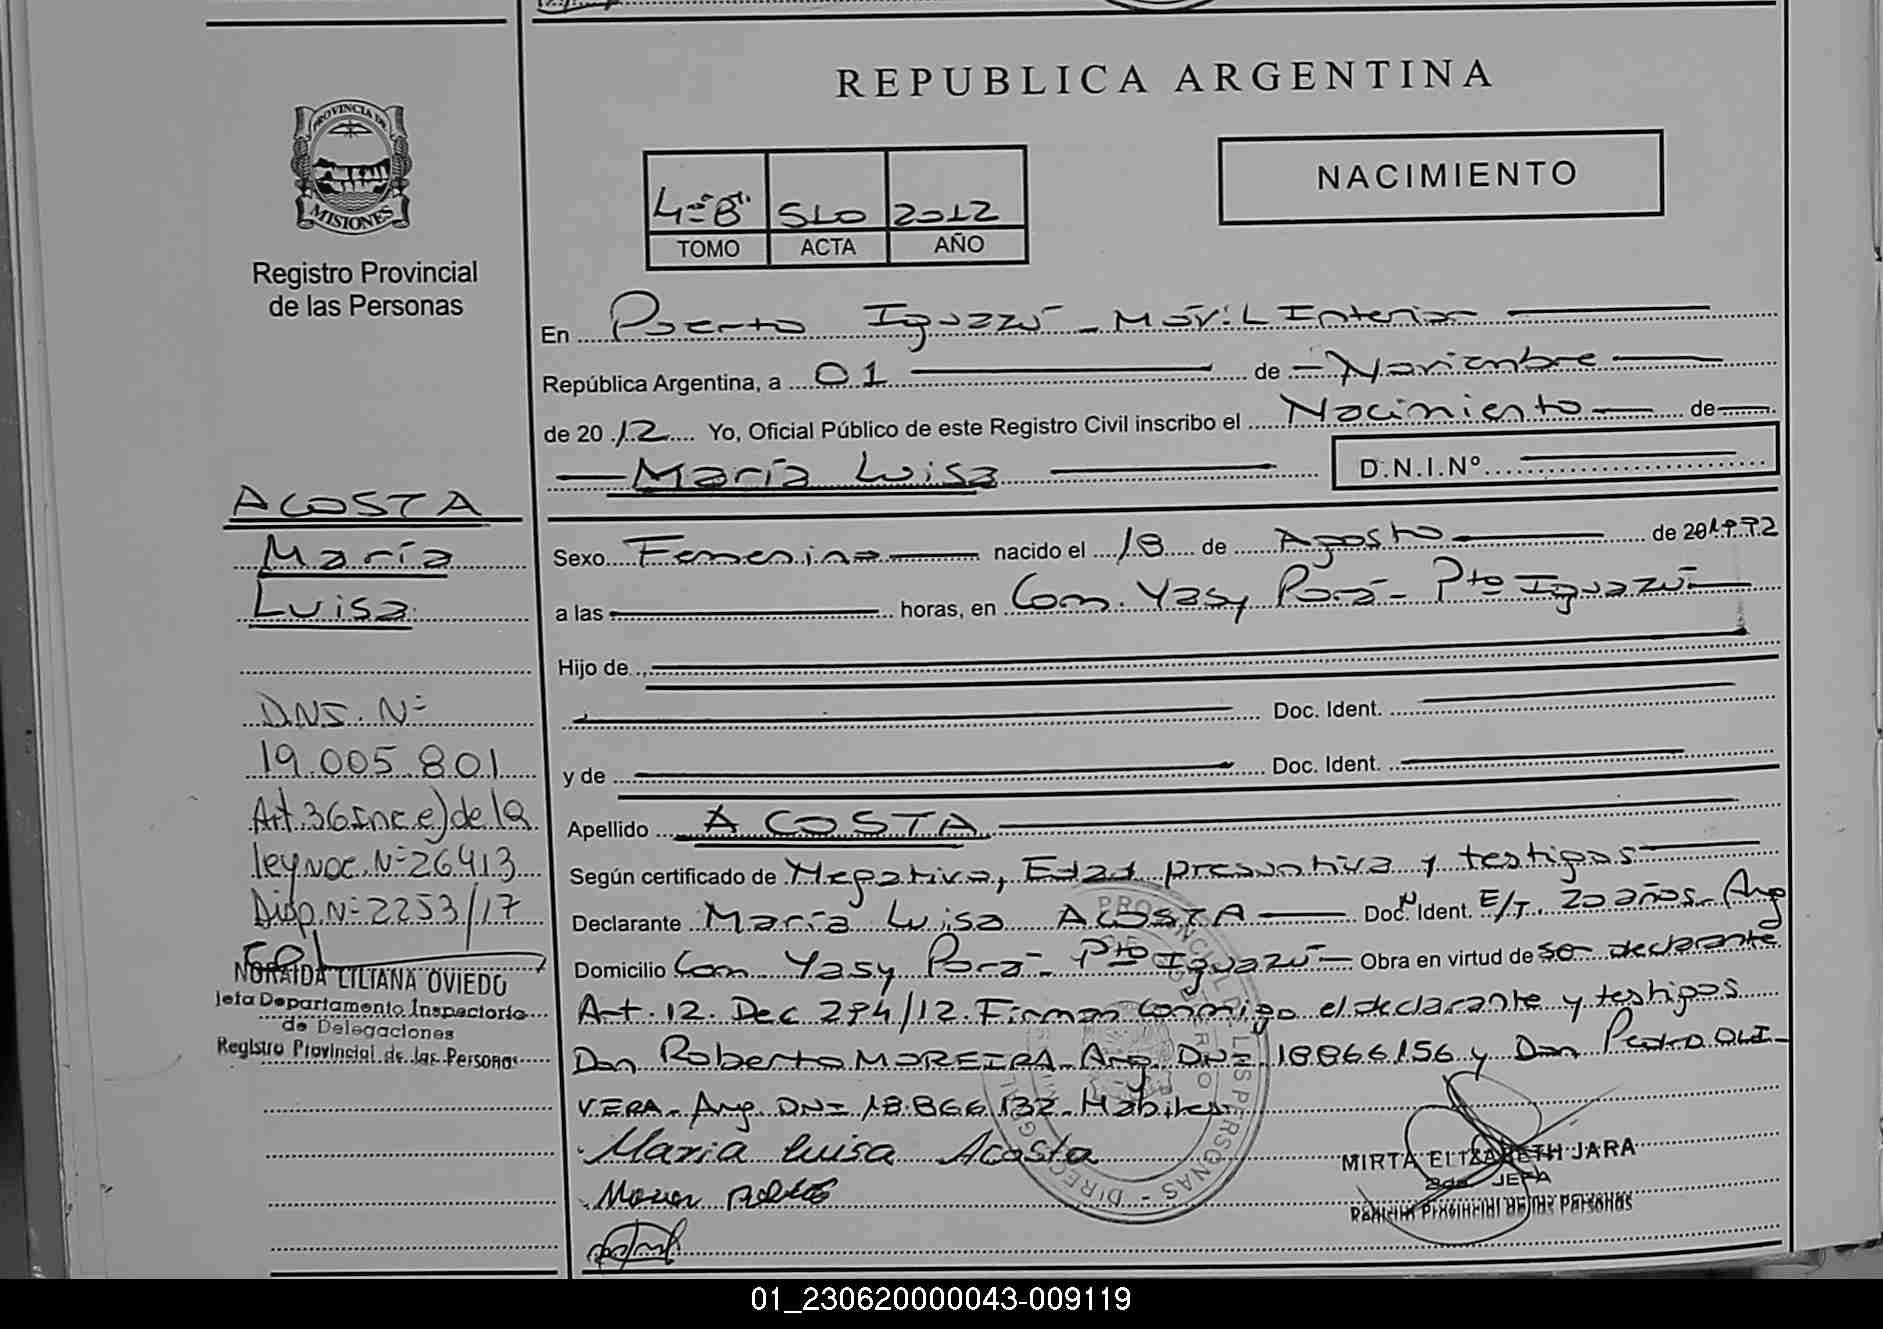 REPUBLICA ARGENTINA
PROVINCIA DE
MISIONES
Registro Provincial
de las Personas
4=B" 510 2012
TOMO ACTA AÑO
NACIMIENTO
En Puerto Iguazú - Móvil Interior
República Argentina, a 01 de Noviembre
de 2012 Yo, Oficial Público de este Registro Civil inscribo el Nacimiento de
María Luisa D.N.I.Nº
ACOSTA
María
Luisa
Sexo Femenino nacido el 18 de Agosto de 1992
a las horas, en Com. Yasy Porá - Pto Iguazú
Hijo de
Doc. Ident.
y de Doc. Ident.
Apellido ACOSTA
Según certificado de Negativa, Edad presuntiva y testigos
Declarante María Luisa ACOSTA Doc. Ident. E/T. 20 años. Arg
Domicilio Com Yasy Porá - Pto Iguazú Obra en virtud de declarante
Art. 12. Dec 294/12. Firman conmigo el declarante y testigos
Don Roberto MOREIRA. Arg. DNI 18866156 y Don Pedro OLI-
VERA. Arg. DNI 18.866.132. Hábiles
Maria Luisa Acosta
D.N.I. Nº
19.005.801
Art. 36 inc e) de la
ley Nac. Nº 26413
Disp. Nº 2253/17
NORAIDA LILIANA OVIEDO
Jefa Departamento Inspectoría
de Delegaciones
Registro Provincial de las Personas
MIRTA ELIZABETH JARA
2da. JEFA
Registro Provincial de las Personas
01_230620000043-009119